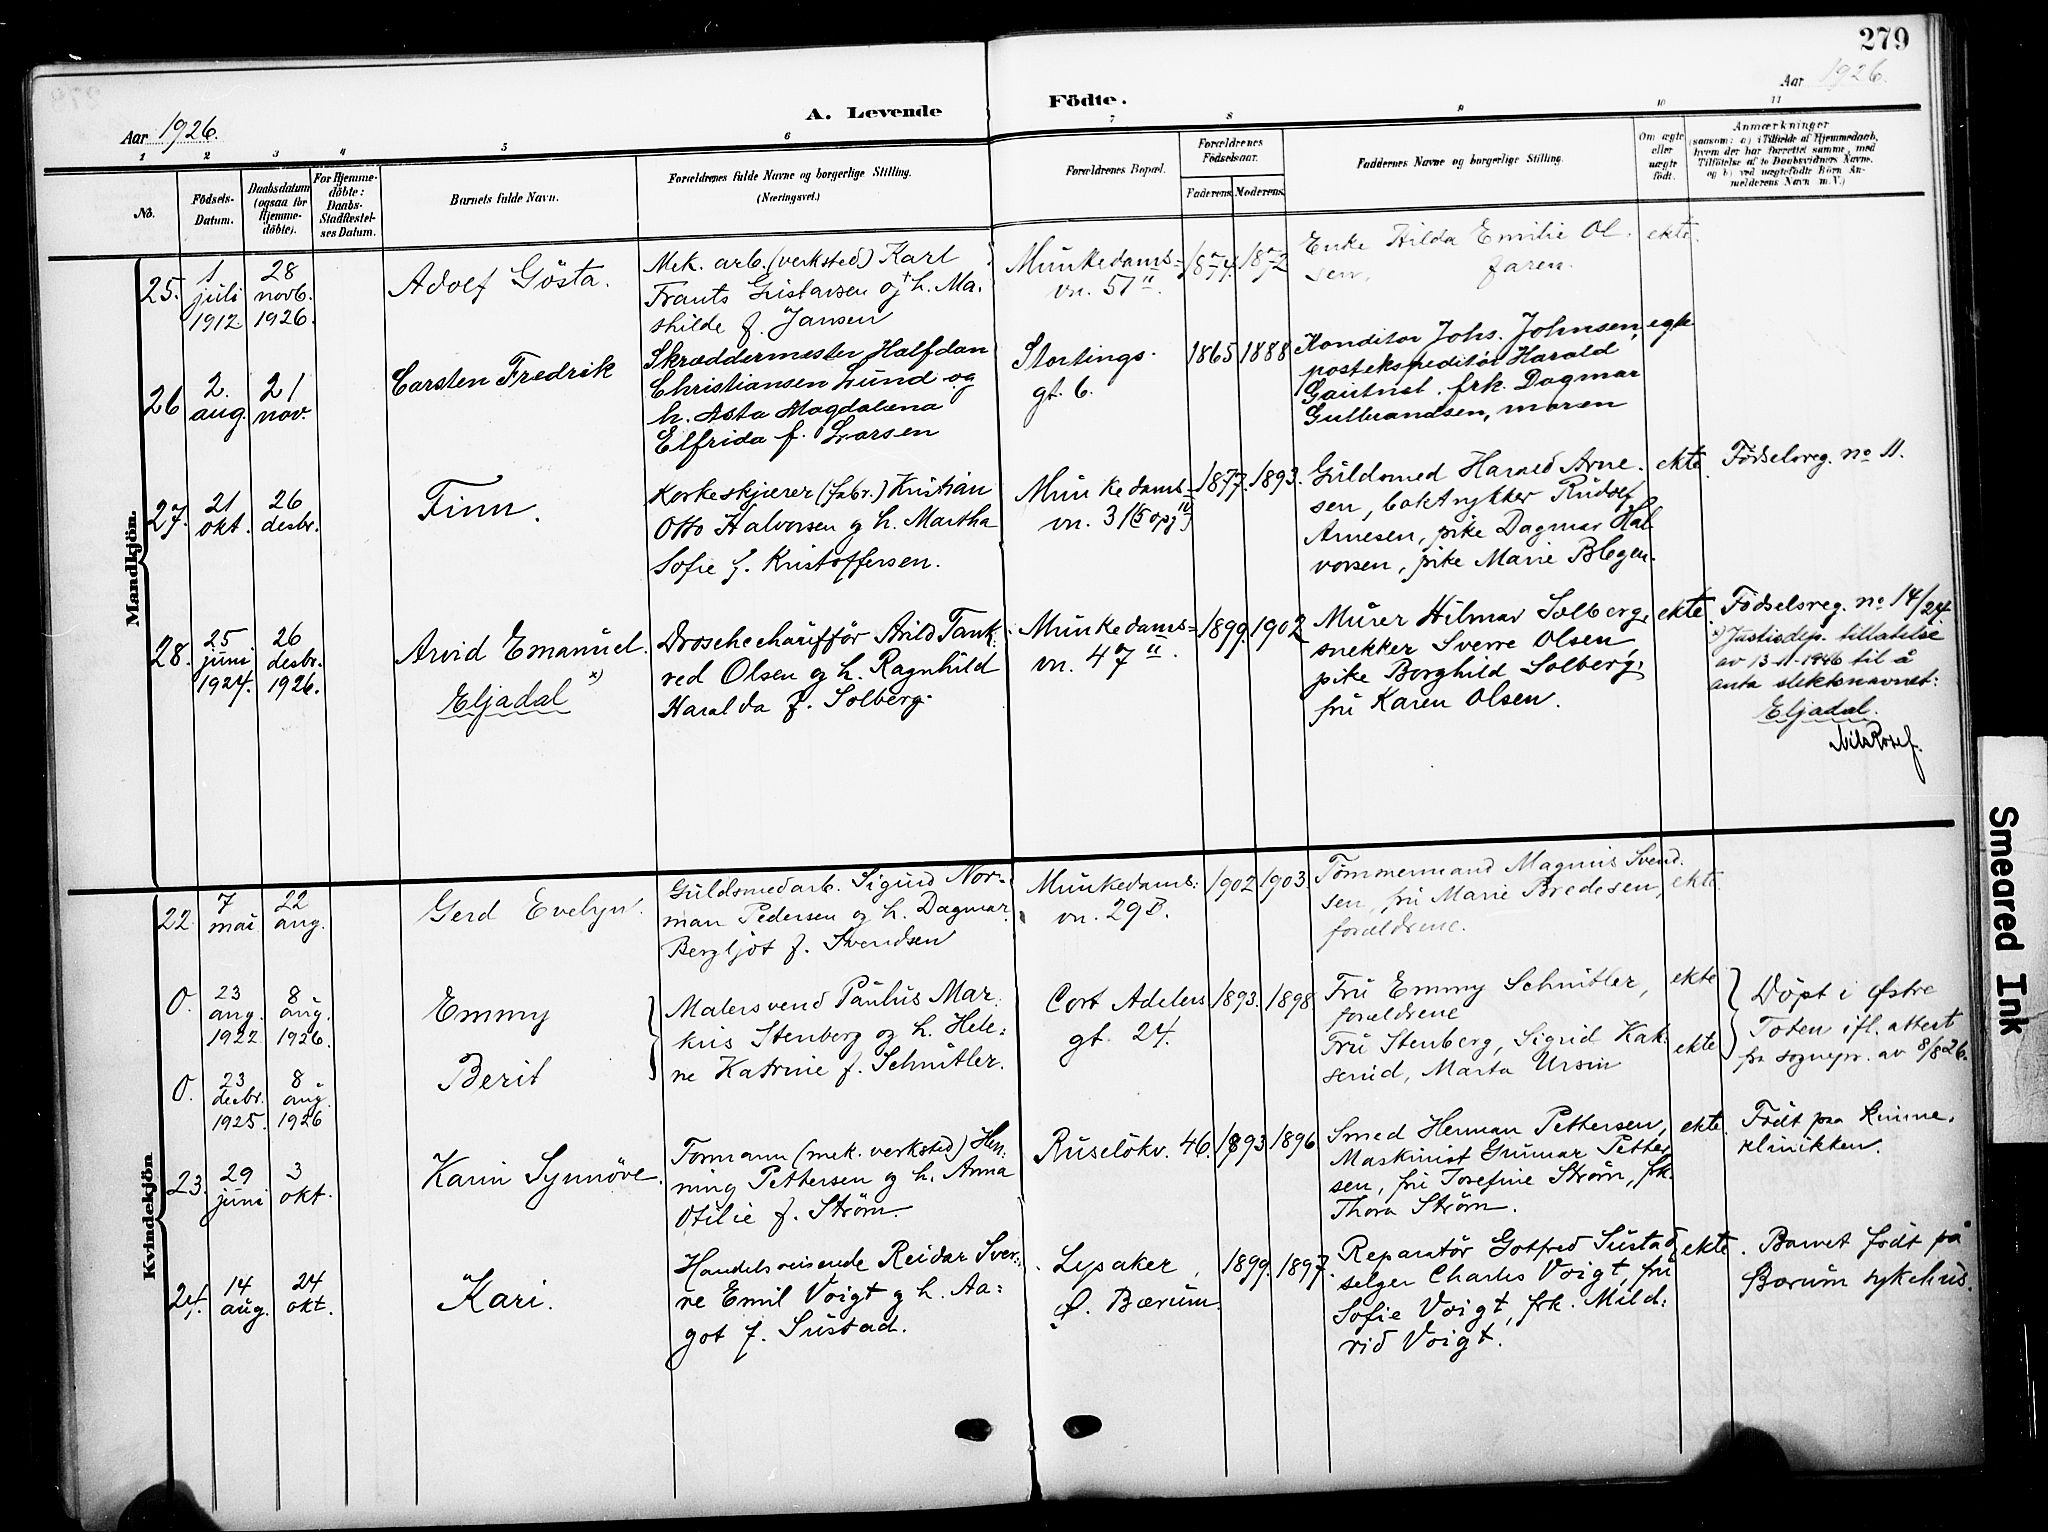 279
Aar 1926.
A. Levende Födte.
Aar 1926.
1 2 3 4 5 6 7 8 9 10 11
No.
Födsels-
Datum.
Daabsdatum
(ogsaa for
Hjemme-
döbte).
For Hjemme-
döbte:
Daabs-
Stadfæstel-
ses Datum.
Barnets fulde Navn.
Forældrenes fulde Navne og borgerlige Stilling.
(Næringsvei.)
Forældrenes Bopæl.
Forældrenes
Födselsaar.
Faderens. Moderens.
Faddernes Navne og borgerlige Stilling.
Om ægte
eller
uægte
födt.
Anmærkninger
(saasom: a) i Tilfælde af Hjemmedaab,
hvem der har forrettet samme, med
Tilföielse af to Daabsvidners Navne,
og b) ved uægtefödte Börn An-
melderens Navn m. V.)
Mandkjön.
25.
1.
juli
1912
28
novb.
1926.
Adolf Gösta.
Mek. arb. (verksted) Karl
Frants Gustavsen og + h. Ma-
thilde f. Jansen
Munkedams-
vn. 51 II.
1874. 1872
Enke Hilda Emilie Ol-
sen, faren.
ekte.
26
2.
aug.
21
nov.
Carsten Fredrik
Skræddermester Halfdan
Christiansen Lund og
h. Asta Magdalena
Elfrida f. Larsen
Stortings-
gt. 6.
1865 1888
Konditor Johs. Johnsen,
postekspeditör Harald
frk. Dagmar
Gulbrandsen, moren
egte
27.
21
okt.
26
desbr.
Finn.
Korkeskjærer (fabr.) Kristian
Otto Halvorsen og h. Martha
Sofie f. Kristoffersen.
Munkedams-
vn. 31 (5 opg IV)
1877. 1893.
Guldsmed Harald Arne-
sen, boktrykker Rudolf
Arnesen, pike Dagmar Hal-
vorsen, pike Marie Blegen.
ekte
Fødselsreg. no 11.
28.
25
juni
1924.
26
desbr.
1926.
Arvid Emanuel
Eljadal x)
Droschechaufför Arild Tank-
red Olsen og h. Ragnhild
Haralda f. Solberg.
Munkedams-
vn. 47 II.
1899. 1902
Murer Hilmar Solberg,
snekker Sverre Olsen
pike Borghild Solberg,
fru Karen Olsen.
ekte.
Fødselsreg. no 14/24.
x) Justisdep. tillatelse
av 13-11-1946 til å
anta slektsnavnet:
Eljadal.
Kvindekjön
22.
7
mai
22
aug.
Gerd Evelyn.
Guldsmedarb. Sigurd Nor-
man Pedersen og h. Dagmar
Bergljot f. Svendsen
Munkedams-
vn. 29B.
1902 1903.
Tømmermand Magnus Svend-
sen, fru Marie Bredesen,
forældrene.
ekte.
0.
23
aug.
1922
8
aug.
1926.
Emmy
Malersvend Paulus Mar-
kus Stenberg og h. Hele-
ne Katrine f. Schnitler.
Cort Adelers
gt. 24.
1893. 1898
Fru Emmy Schnitler,
forældrene
ekte
Døpt i Østre
Toten ifl. attest
fra sognepr. av 8/8 26.
0.
23
desbr.
1925.
8
aug.
1926
Berit
Fru Stenberg, Sigrid Kak-
serud, Marta Ursin
ekte
23.
29
juni
3
okt.
Karin Synnöve.
Formann (mek. verksted) Hen-
ning Pettersen og h. Anna
Otilie f. Strøm.
Ruselökv. 46.
1893 1896
Smed Herman Pettersen,
Maskinist Gunnar Petter-
sen, fru Josefine Strøm, frk.
Thora Strøm.
ekte.
Født paa kvinne-
klinikken.
24.
14
aug.
24
okt.
Kari.
Handelsreisende Reidar Sver-
re Emil Voigt og h. Aa-
got f. Sustad.
Lysaker,
Ø. Bærum.
1899. 1897.
Reparatör Gotfred Sustad,
selger Charles Voigt, fru
Sofie Voigt, frk. Mild-
rid Voigt.
ekte.
Barnet født på
Bærum sykehus.
Smeared Ink